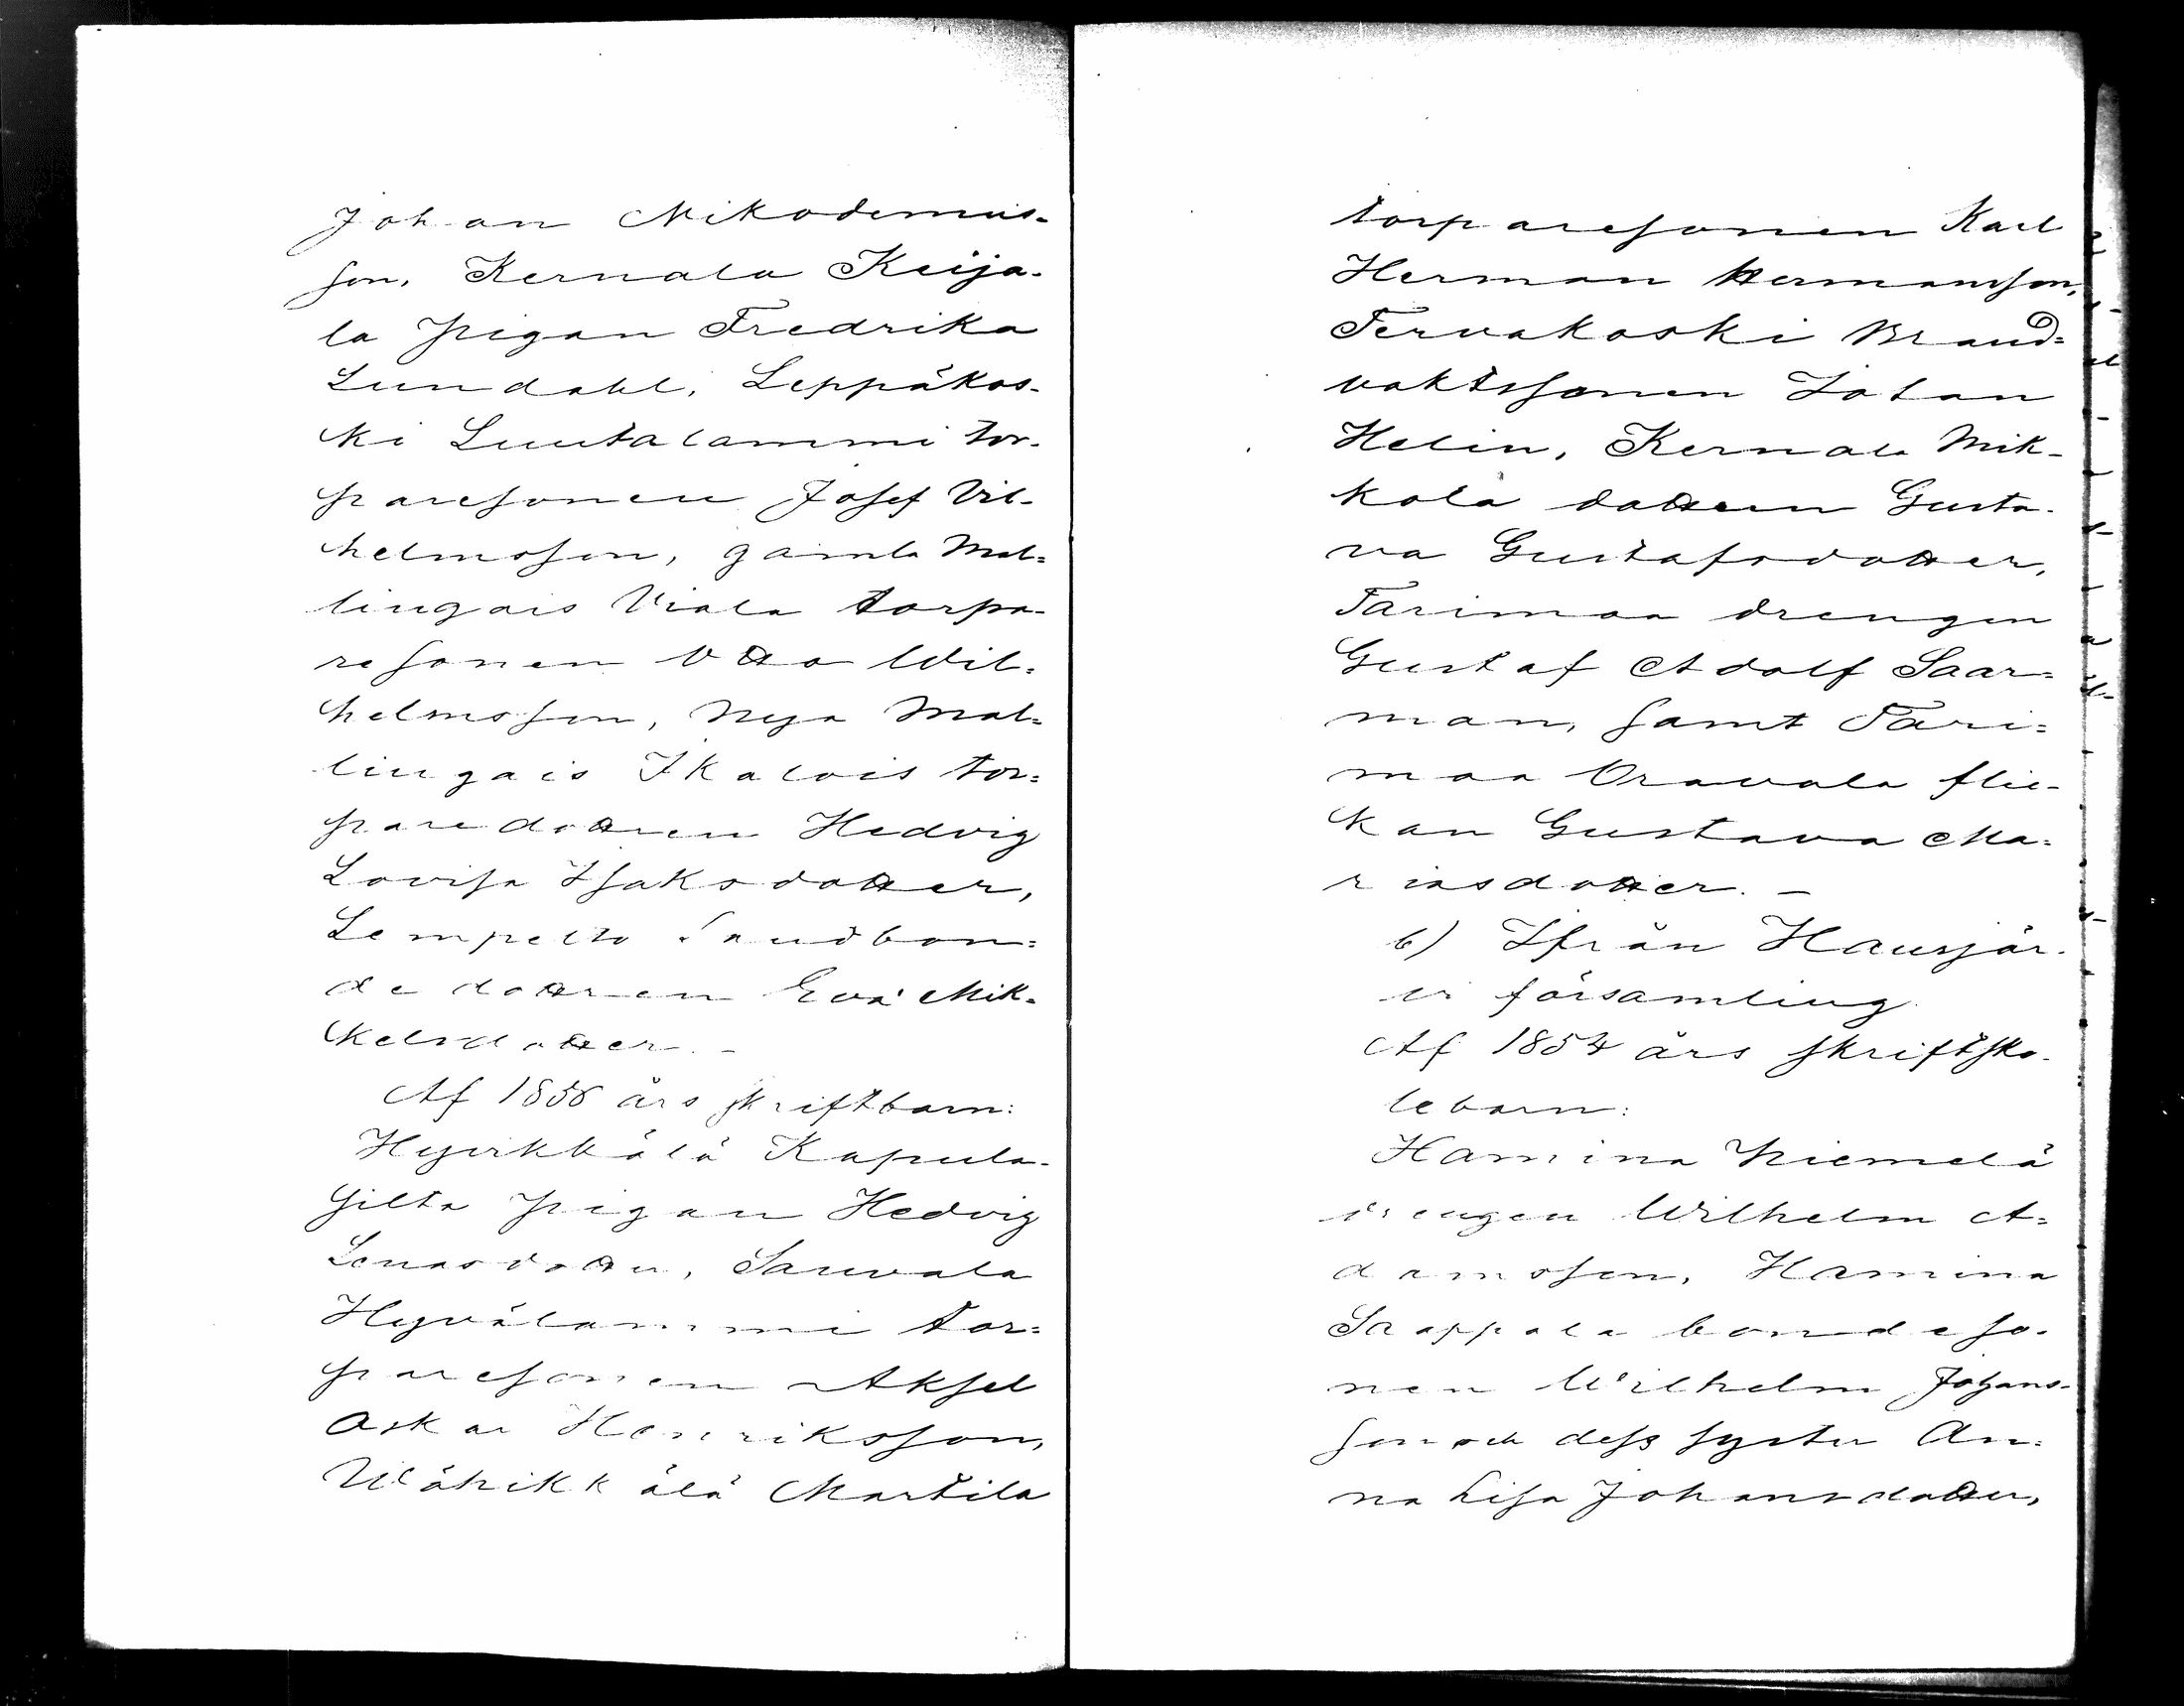 Johan Nikodemus-
son, Kernala Keija-
la pigan Fredrika
Lundahl, Leppäkos-
ki Luutalammi tor-
paresonen Josef Vil-
helmsson, gamla Mal-
lingais Viala torpa-
resonen Otto Wil-
helmsson, Nya Mal-
lingais Ikalois tor-
paredottren Hedvig
Lovisa Isaksdotter,
Lempelto Landbon-
dedottren Eva Mik-
kelsdotter. -
Af 1856 års skriftbarn:
Hyvikkälä Kapula-
silta pigan Hedvig
Lenasdotter, Sauvala
Hyvälammi tor-
paresonen Aksel
Oskar Henriksson,
Wähikkälä Martila
torparesonen Karl
Herman Hermansson,
Tervakoski Brand-
vaktssonen Johan
Helin, Kernala Mik-
kola dottren Gusta-
va Gustafsdotter,
Tarimaa drengen
Gustaf Adolf Saar-
man, samt Tari-
maa Oravala flic-
kan Gustava Ma-
riasdotter. -
b) Ifrån Hausjär-
vi församling.
Af 1854 års skriftsko-
lebarn:
Hamina Niemelä
drengen Wilhelm A-
damsson, Hamina
Saappala bondeso-
nen Wilhelm Johans-
son och dess syster An-
na Lisa Johansdotter,